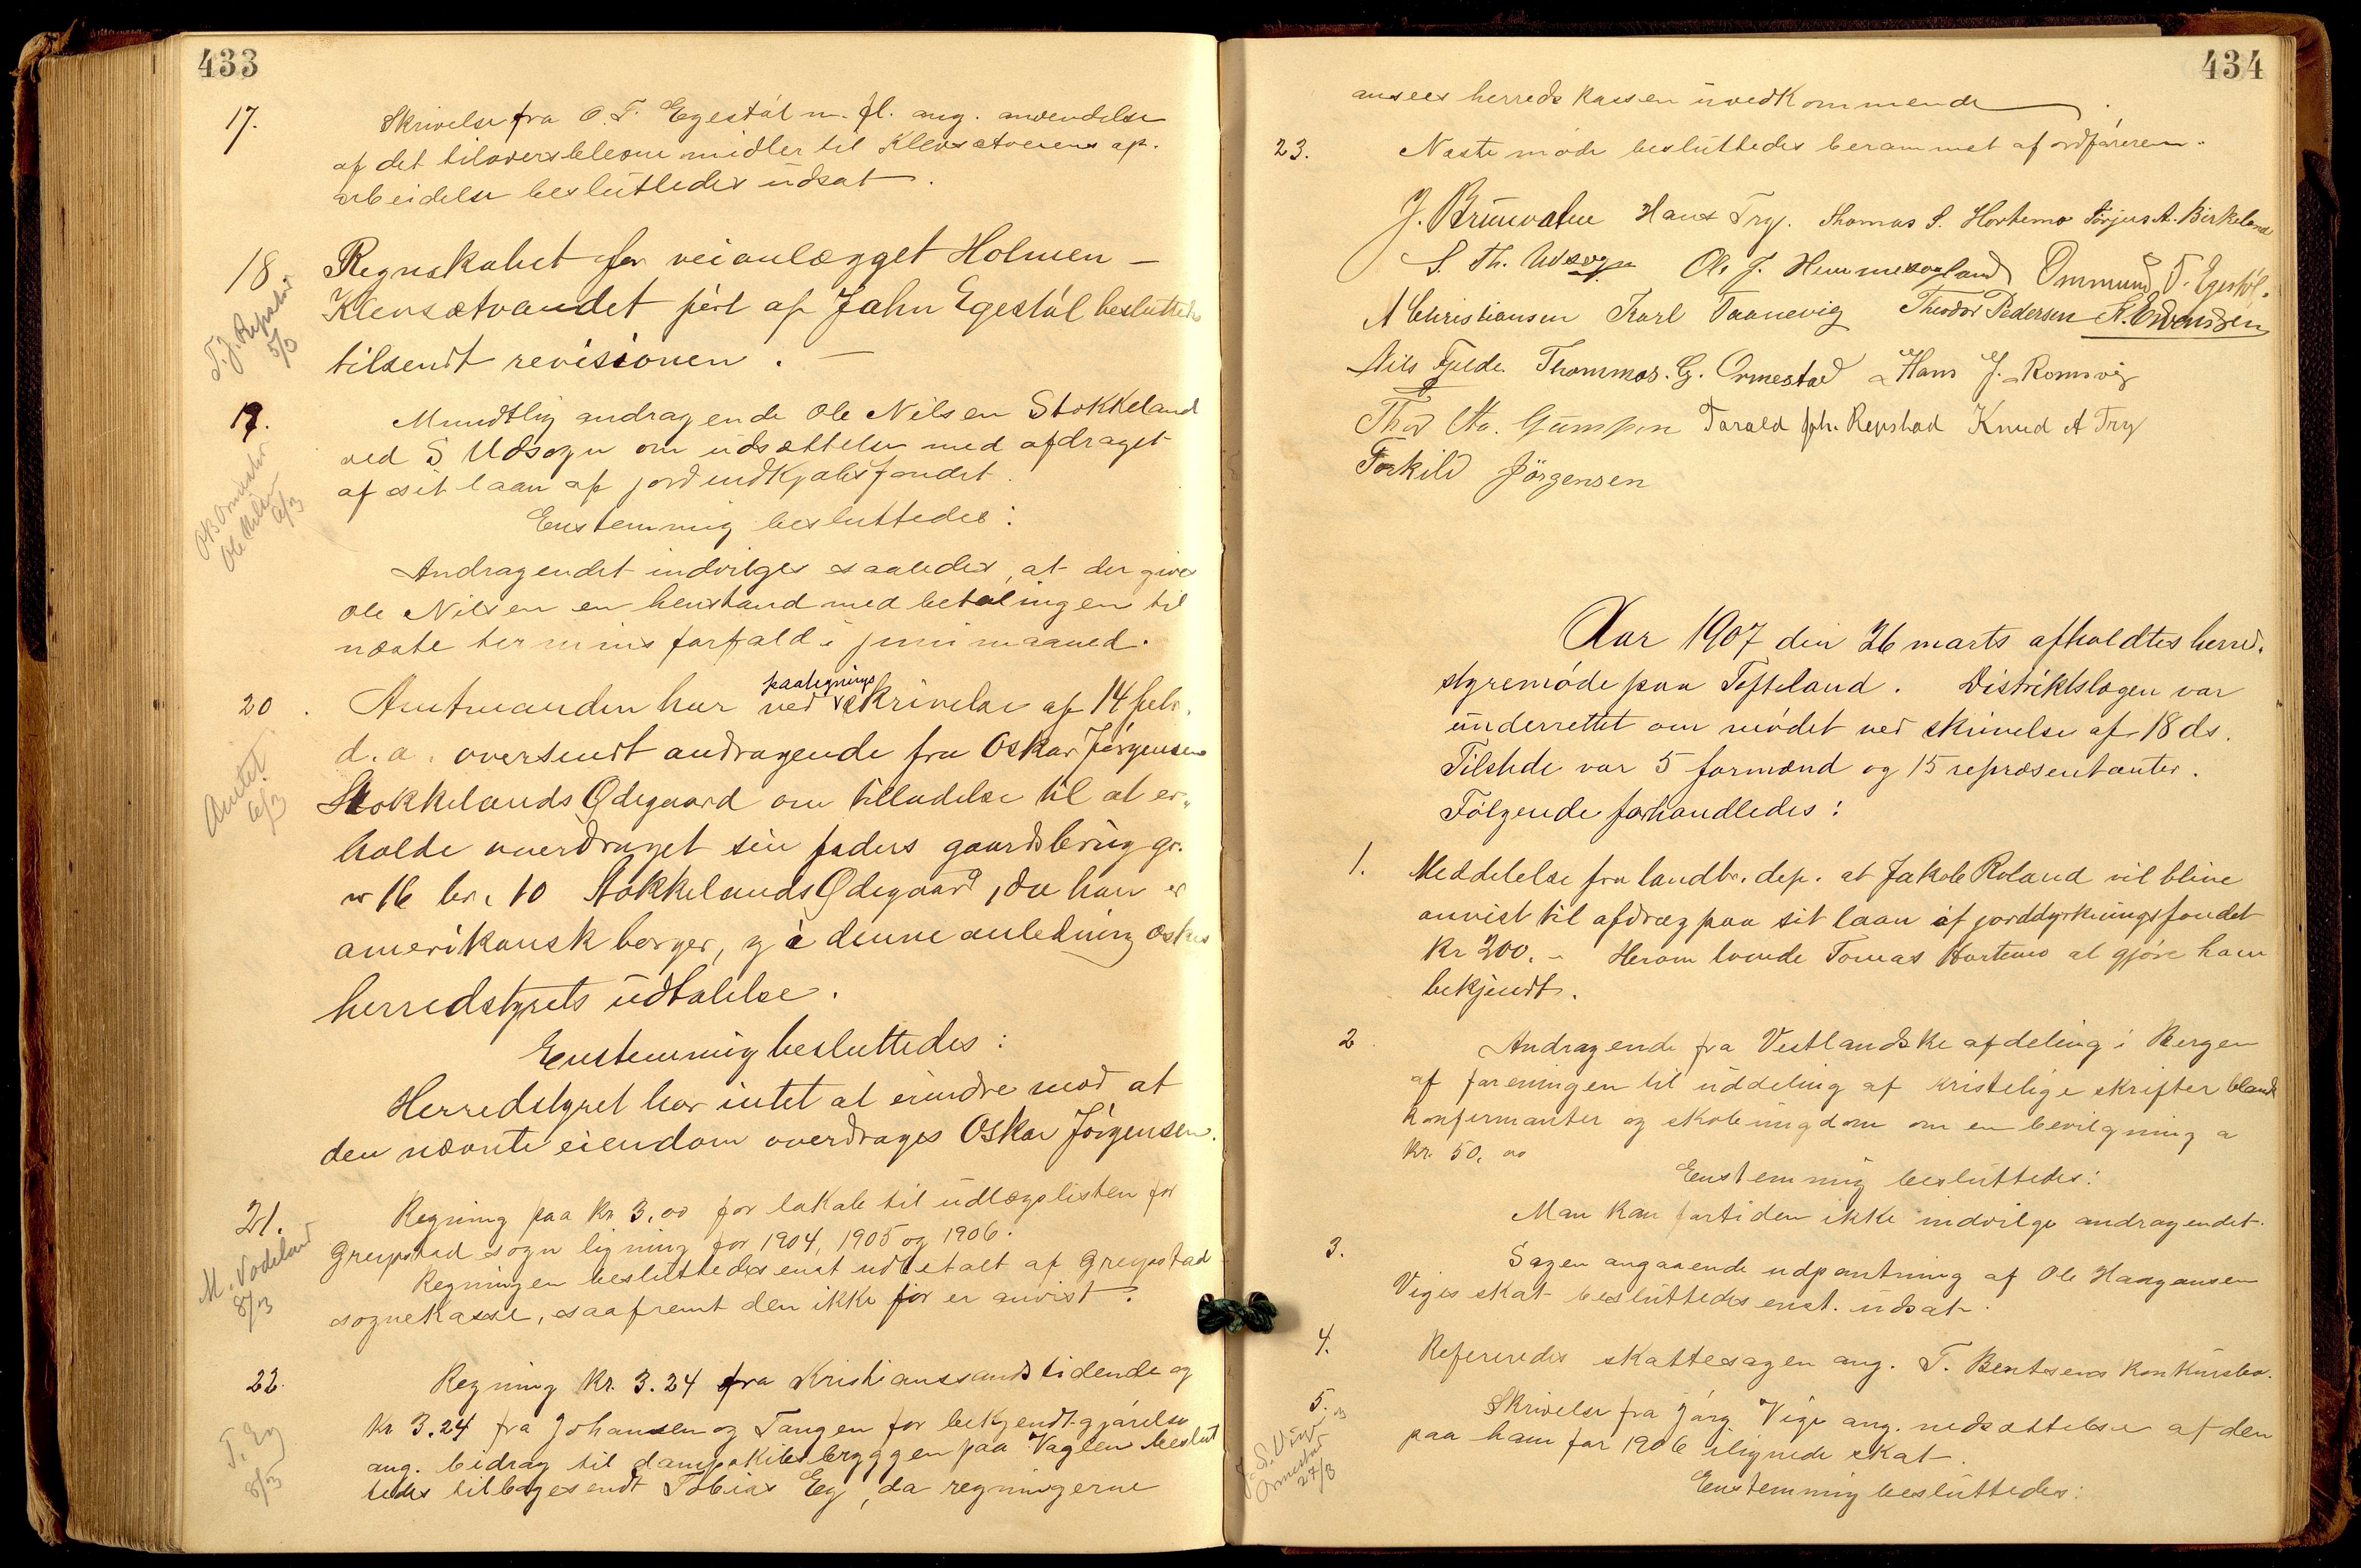 433
17. Skrivelse fra O. T. Egestøl m. fl. ang. anvendelse
af det tiloversblevne midler til Klevsætveiens op-
arbeidelse besluttedes udsat.
18. Regnskabet for veianlægget Holmen –
T. J. Repstad 5/3
Klevsætvandet ført af Jahn Egestøl besluttedes
tilsendt revisionen. –
19. Mundtlig andragende Ole Nilsen Stokkeland
ved S Udsogn om udsættelse med afdraget
af sit laan af jordindkjøbsfondet.
O B Ormestad
Ole Nilsen
6/3
Enstemmig besluttedes:
Andragendet indvilges saaledes, at der gives
Ole Nilsen en henstand med betalingen til
næste termins forfald i juni maaned.
20. Amtmanden har ved paategnings skrivelse af 14 febr.
d. a. oversendt andragende fra Oskar Jørgensen
Amtet 6/3
Stokkelands Ødegaard om tilladelse til at er-
holde overdraget sin faders gaardsbrug gr.
nr 16 br. 10 Stokkelands Ødegaard, da han er
amerikansk borger, og i denne anledning æskes
herredstyrets udtalelse.
Enstemmig besluttedes:
Herredstyret har intet at erindre mod at
den nævnte eiendom overdrages Oskar Jørgensen.
21. Regning paa kr 3,00 for lokale til udlægslisten for
Grepstad sogn ligning for 1904, 1905 og 1906.
M. Vodeland 8/3
Regningen besluttedes enst udbetalt af Grepstad
sognekasse, saafremt den ikke før er anvist.
22. Regning kr. 3.24 fra Kristianssands tidende og
kr 3.24 fra Johansen og Tangen for bekjendtgjørelse
T. Eg 8/3
ang. bidrag til dampskibsbryggen paa Vaglen beslut
tedes tilbagesendt Tobias Eg, da regningerne
434
ansees herredskassen uvedkommende.
23. Næste møde besluttedes berammet af ordføreren.
J. Brunvatne Hans Try. Thomas S. Hortemo Torjus A. Birkeland
S. Th. Udsogn Ole J. Hummesogland Ommund T. Egestøl.
A Christiansen Karl Taanevig Theodor Pedersen A. Evensen
Nils Fjelde. Thommas. G. Ormestad Hans J. Romsvig
Tho Gumpen Tarald Joh. Repstad Knud A Try
Torkild Jörgensen
Aar 1907 den 26 marts afholdtes herred-
styremøde paa Tofteland. Distriktslægen var
underrettet om mødet ved skrivelse af 18 ds.
Tilstede var 5 formænd og 15 repræsentanter.
Følgende forhandledes:
1. Meddelelse fra landbr. dep. at Jakob Roland vil blive
anvist til afdrag paa sit laan af jorddyrkningsfondet
Kr 200. – Herom lovede Tomas Hortemo at gjøre ham
bekjendt.
2. Andragende fra Vestlandske afdeling i Bergen
af foreningen til uddeling af kristelige skrifter bland
konfirmanter og skoleungdom om en bevilgning a
kr. 50,00
Enstemmig besluttedes:
Man kan fortiden ikke indvilge andragendet.
3. Sagen angaaende udpantning af Ole Haagansen
Viges skat besluttedes enst. udsat.
4. Refereredes skattesagen ang. T. Bentsens konkursbo.
5. Skrivelse fra Jørg Vige ang. nedsættelse af den
J. S. Vige og
Ormestad
27/3
paa ham for 1906 ilignede skat.
Enstemmig besluttedes: